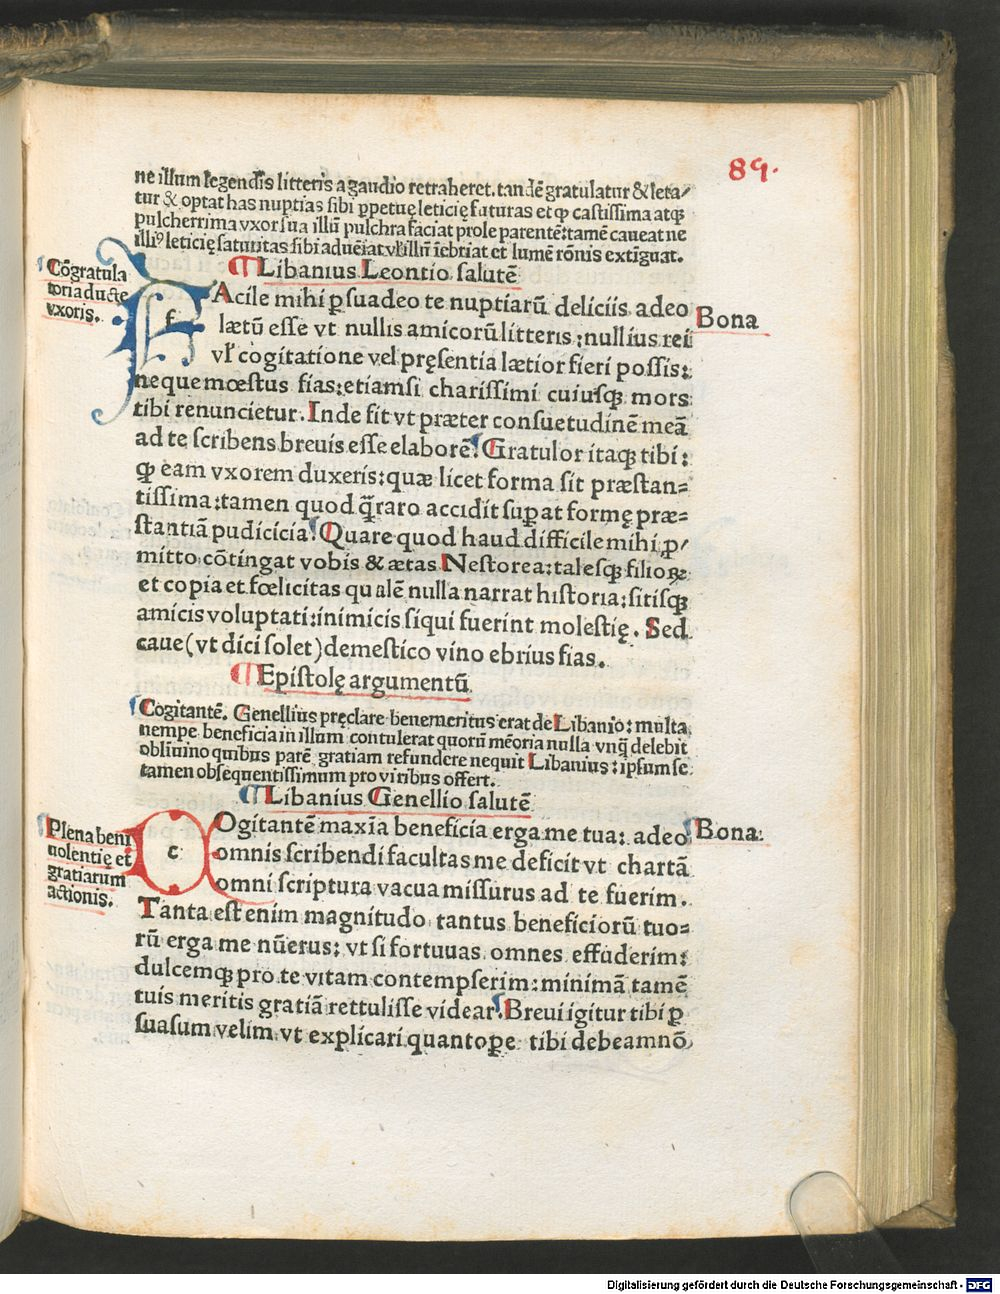 89.
ne illum legendis litteris a gaudio retraheret. tandē gratulatur & leta/
tur & optat has nuptias sibi ꝑpetuę leticię futuras et ꝙ castissima atqꝫ
pulcherrima vxor sua illū pulchra faciat prole parentē: tamē caueat ne
illiꝰ leticię saturitas sibi adueīat vbi illū īebriat et lumē rōnis extiguat.
¶ Libanius Leontio salutē
Cōgratula
toria ducte
vxoris.
f
Acile mihi ꝑsuadeo te nuptiarū deliciis adeo
Bona
lætū esse vt nullis amicorū litteris: nullius rei
vl' cogitatione vel pręsentia lætior fieri possis:
neque mœstus fias: etiamsi charissimi cuiusqꝫ mors
tibi renuncietur. Inde fit vt præter consuetudinē meā
ad te scribens breuis esse elaborē. Gratulor itaqꝫ tibi:
ꝙ eam vxorem duxeris: quæ licet forma sit præstan=
tissima: tamen quod q̄raro accidit suꝑat formę præ=
stantiā pudicicia. Quare quod haud difficile mihi ꝓ/
mitto cōtingat vobis & ætas Nestorea: talesqꝫ filioꝝ
et copia et fœlicitas qualē nulla narrat historia: sitisqꝫ
amicis voluptati: inimicis siqui fuerint molestię. Sed
caue (vt dici solet) demestico vino ebrius fias.
¶ Epistolę argumentū
Cogitantē. Genellius pręclare benemeritus erat de Libanio: multa
nempe beneficia in illum contulerat quorū mēoria nulla vnq̄ delebit
obliuino quibus parē gratiam refundere nequit Libanius: ipsum se
tamen obsequentissimum pro viribus offert.
¶ Libanius Genellio salutē
Plena beni
uolentię et
gratiarum
actionis.
c
Ogitantē maxīa beneficia erga me tua: adeo
Bona:
omnis scribendi facultas me deficit vt chartā
omni scriptura vacua missurus ad te fuerim.
Tanta est enim magnitudo tantus beneficiorū tuo=
rū erga me nūerus: vt si fortuuas omnes effuderim:
dulcemqꝫ pro te vitam contempserim: minimā tamē
tuis meritis gratiā rettulisse videar. Breui igitur tibi ꝑ
suasum velim vt explicari quantoꝑe tibi debeam nō
Digitalisierung gefördert durch die Deutsche Forschungsgemeinschaft - DFG